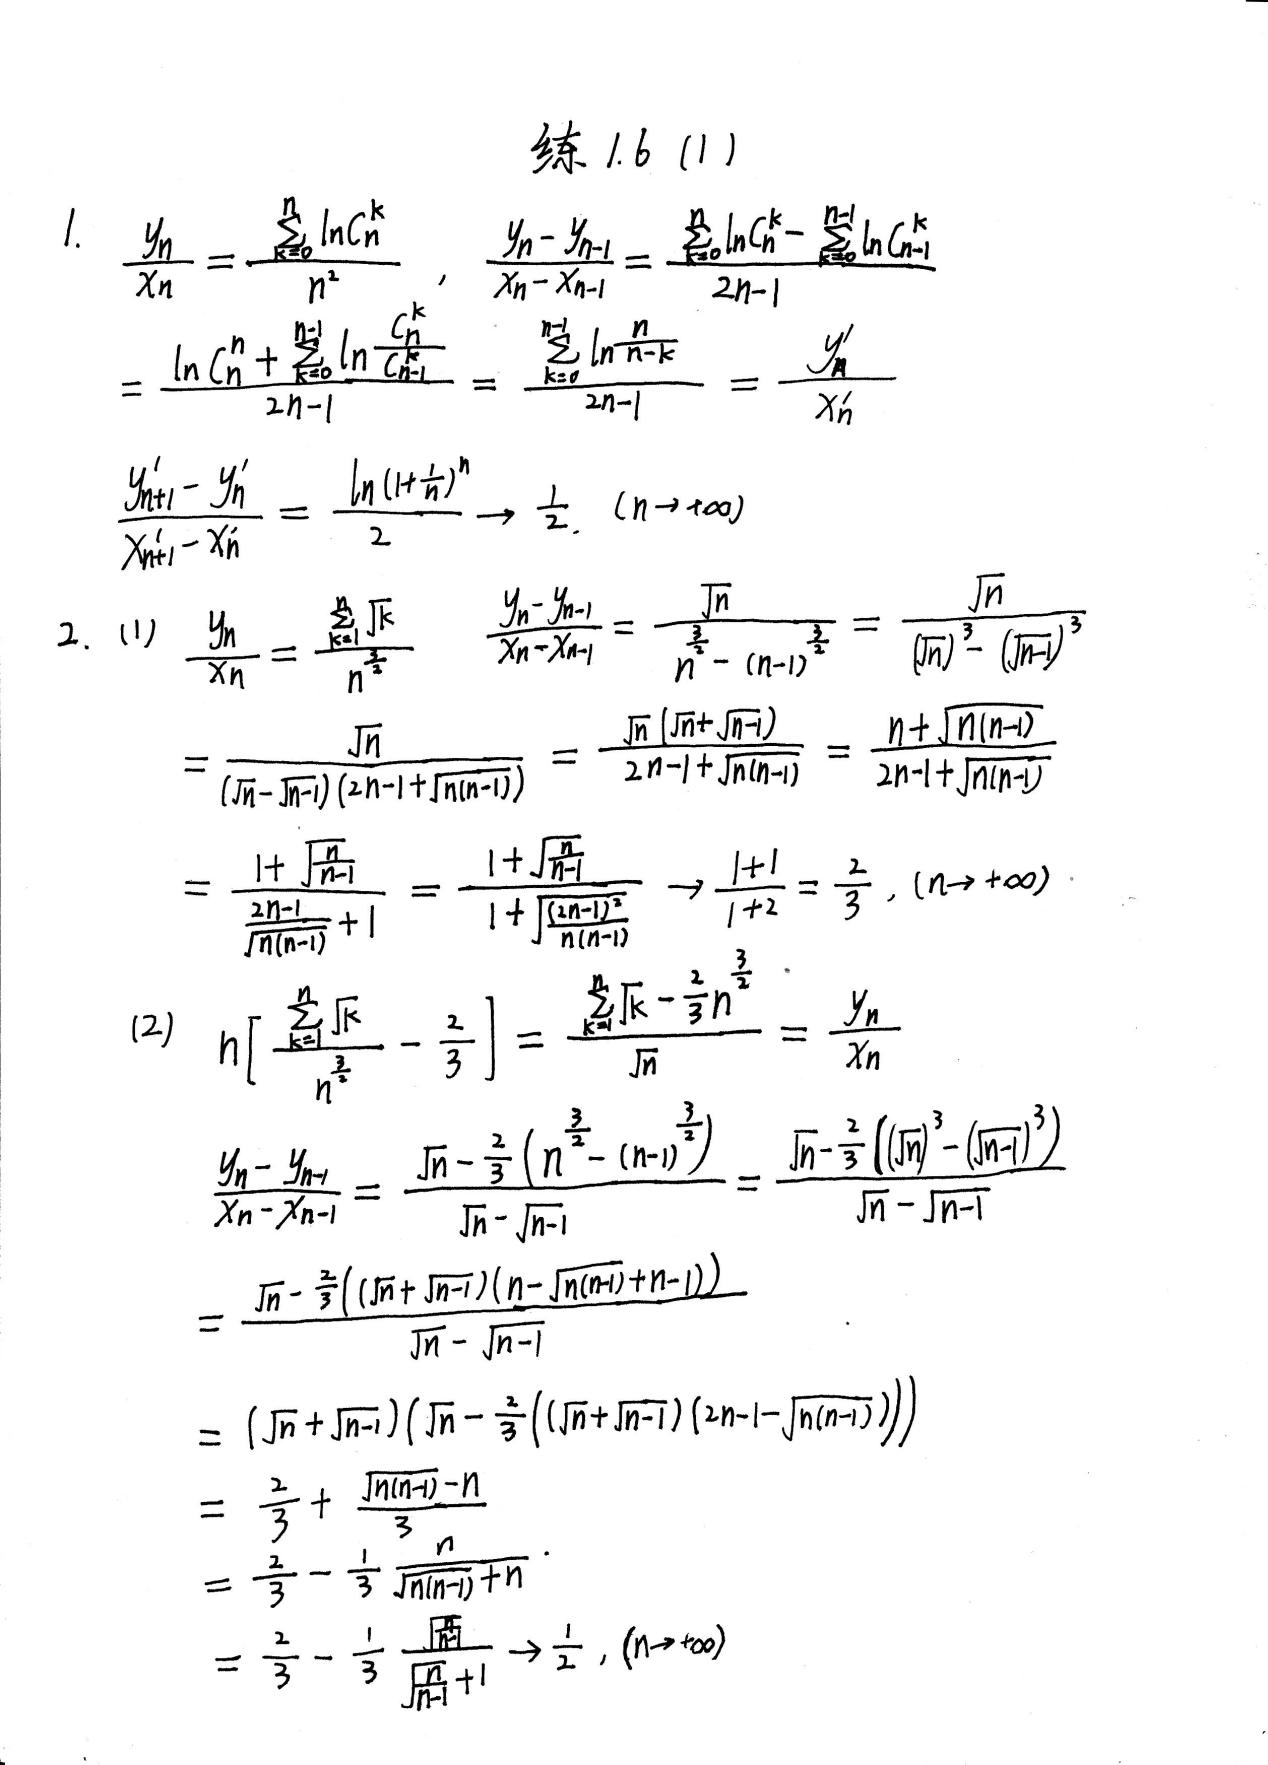 练 1.6 (1)
1. $\frac{y_n}{x_n} = \frac{\sum_{k=0}^{n} \ln C_n^k}{n^2}$, $\frac{y_n - y_{n-1}}{x_n - x_{n-1}} = \frac{\sum_{k=0}^{n} \ln C_n^k - \sum_{k=0}^{n-1} \ln C_{n-1}^k}{2n-1}$
$= \frac{\ln C_n^n + \sum_{k=0}^{n-1} \ln \frac{C_n^k}{C_{n-1}^k}}{2n-1} = \frac{\sum_{k=0}^{n-1} \ln \frac{n}{n-k}}{2n-1} = \frac{y_n'}{x_n'}$
$\frac{y_{n+1}' - y_n'}{x_{n+1}' - x_n'} = \frac{\ln (1+\frac{1}{n})^n}{2} \to \frac{1}{2}. (n \to +\infty)$
2. (1) $\frac{y_n}{x_n} = \frac{\sum_{k=1}^{n} \sqrt{k}}{n^{\frac{3}{2}}}$ $\frac{y_n - y_{n-1}}{x_n - x_{n-1}} = \frac{\sqrt{n}}{n^{\frac{3}{2}} - (n-1)^{\frac{3}{2}}} = \frac{\sqrt{n}}{(\sqrt{n})^3 - (\sqrt{n-1})^3}$
$= \frac{\sqrt{n}}{(\sqrt{n} - \sqrt{n-1})(2n-1+\sqrt{n(n-1)})} = \frac{\sqrt{n}(\sqrt{n}+\sqrt{n-1})}{2n-1+\sqrt{n(n-1)}} = \frac{n+\sqrt{n(n-1)}}{2n-1+\sqrt{n(n-1)}}$
$= \frac{1+\sqrt{\frac{n}{n-1}}}{\frac{2n-1}{\sqrt{n(n-1)}}+1} = \frac{1+\sqrt{\frac{n}{n-1}}}{1+\sqrt{\frac{(2n-1)^2}{n(n-1)}}} \to \frac{1+1}{1+2} = \frac{2}{3}, (n \to +\infty)$
(2) $n\left[\frac{\sum_{k=1}^{n} \sqrt{k}}{n^{\frac{3}{2}}} - \frac{2}{3}\right] = \frac{\sum_{k=1}^{n} \sqrt{k} - \frac{2}{3}n^{\frac{3}{2}}}{\sqrt{n}} = \frac{y_n}{x_n}$
$\frac{y_n - y_{n-1}}{x_n - x_{n-1}} = \frac{\sqrt{n} - \frac{2}{3}(n^{\frac{3}{2}} - (n-1)^{\frac{3}{2}})}{\sqrt{n} - \sqrt{n-1}} = \frac{\sqrt{n} - \frac{2}{3}((\sqrt{n})^3 - (\sqrt{n-1})^3)}{\sqrt{n} - \sqrt{n-1}}$
$= \frac{\sqrt{n} - \frac{2}{3}((\sqrt{n}+\sqrt{n-1})(n-\sqrt{n(n-1)}+n-1))}{\sqrt{n} - \sqrt{n-1}}$
$= (\sqrt{n}+\sqrt{n-1})(\sqrt{n} - \frac{2}{3}((\sqrt{n}+\sqrt{n-1})(2n-1-\sqrt{n(n-1)})))$
$= \frac{2}{3} + \frac{\sqrt{n(n-1)}-n}{3}$
$= \frac{2}{3} - \frac{1}{3}\frac{n}{\sqrt{n(n-1)}+n}$
$= \frac{2}{3} - \frac{1}{3}\frac{\sqrt{\frac{n}{n-1}}}{\sqrt{\frac{n}{n-1}}+1} \to \frac{1}{2}, (n \to +\infty)$